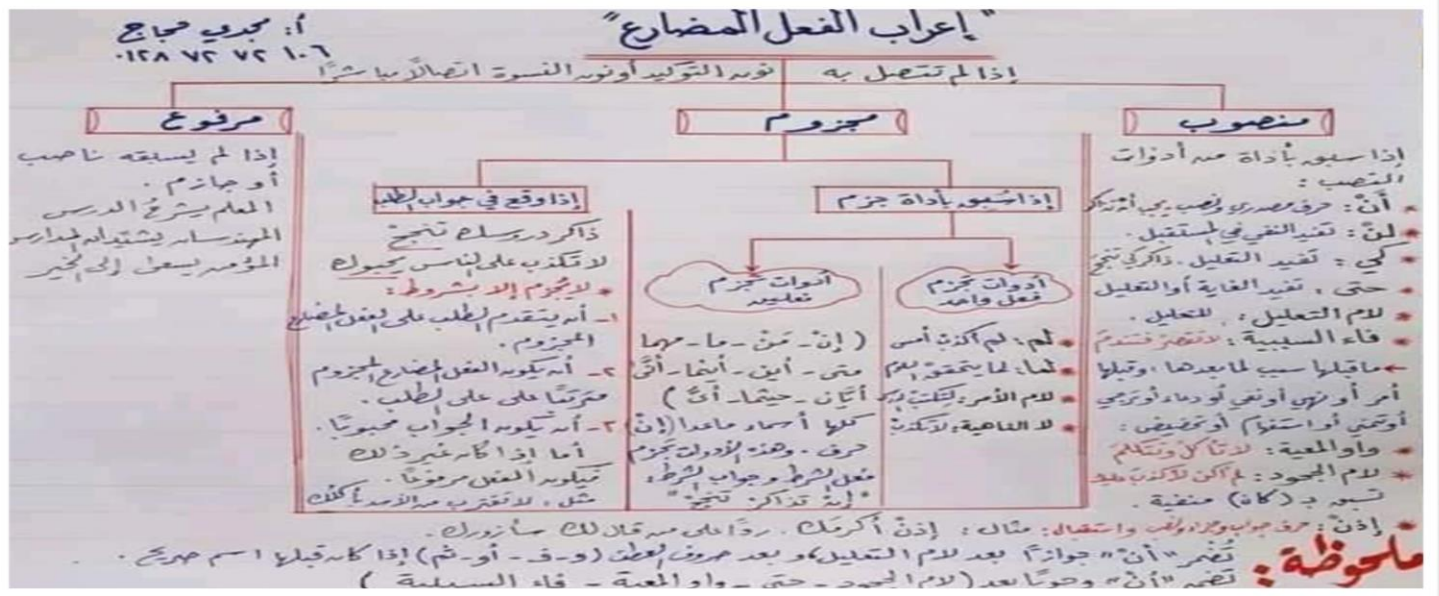 "إعراب الفعل المضارع"
أ: مجدي حجاج
٠١٢٨ ٧٢ ٧٢ ١٠٦
إذا لم تتصل به نون التوكيد أو نون النسوة اتصالًا مباشرًا
منصوب
إذا سبق بأداة من أدوات
النصب :
* أنْ: حرف مصدري ونصب
* لنْ: تفيد النفي في المستقبل.
* كي: تفيد التعليل. ذاكر كي تنجح
* حتى: تفيد الغاية أو التعليل
* لام التعليل: للتعليل.
* فاء السببية: لا تقصر فتندم
← ما قبلها سبب لما بعدها، وقبلها
أمر أو نهي أو نفي أو دعاء أو ترجي
أو تمني أو استفهام أو تحضيض:
* واو المعية: لا تأكل وتتكلم
* لام الجحود: لم أكن لأكذب
تسبق بـ (كان) منفية.
* إذنْ: حرف جواب وجزاء ونصب واستقبال: مثال: إذنْ أكرمَك. ردًا على من قال لك سأزورك.
مجزوم
إذا سُبق بأداة جزم
أدوات تجزم
فعل واحد
* لم: لم أكذب أمس
* لما: لما يتحقق
* لام الأمر:
* لا الناهية: لا تكذبْ
أدوات تجزم
فعلين
( إنْ - مَنْ - ما - مهما
متى - أين - أينما - أنَّى
أيَّان - حيثما - أيّ )
كلها أسماء ماعدا (إنْ)
حرف. وهذه الأدوات تجزم
فعل الشرط وجواب الشرط:
"إنْ تذاكرْ تنجحْ"
إذا وقع في جواب الطلب
ذاكر دروسك تنجحْ
لا تكذب على الناس يحبوك
* لا يُجزم إلا بشروط:
١- أن يتقدم الطلب على الفعل المضارع
المجزوم.
٢- أن يكون الفعل المضارع المجزوم
مترتبًا على على الطلب.
٣- أن يكون الجواب محبوبًا.
أما إذا كان غير ذلك
فيكون الفعل مرفوعًا.
مثل: لا تقترب من الأسد يأكلُك
مرفوع
إذا لم يسبقه ناصب
أو جازم.
المعلم يشرحُ الدرس
المهندسان يشيدان المدارس
المؤمن يسعى إلى الخير
ملحوظة:
تُضمر "أنْ" جوازًا بعد لام التعليل، وبعد حروف العطف (و - ف - أو - ثم) إذا كان قبلها اسم صريح.
تضمر "أنْ" وجوبًا بعد (لام الجحود - حتى - واو المعية - فاء السببية)